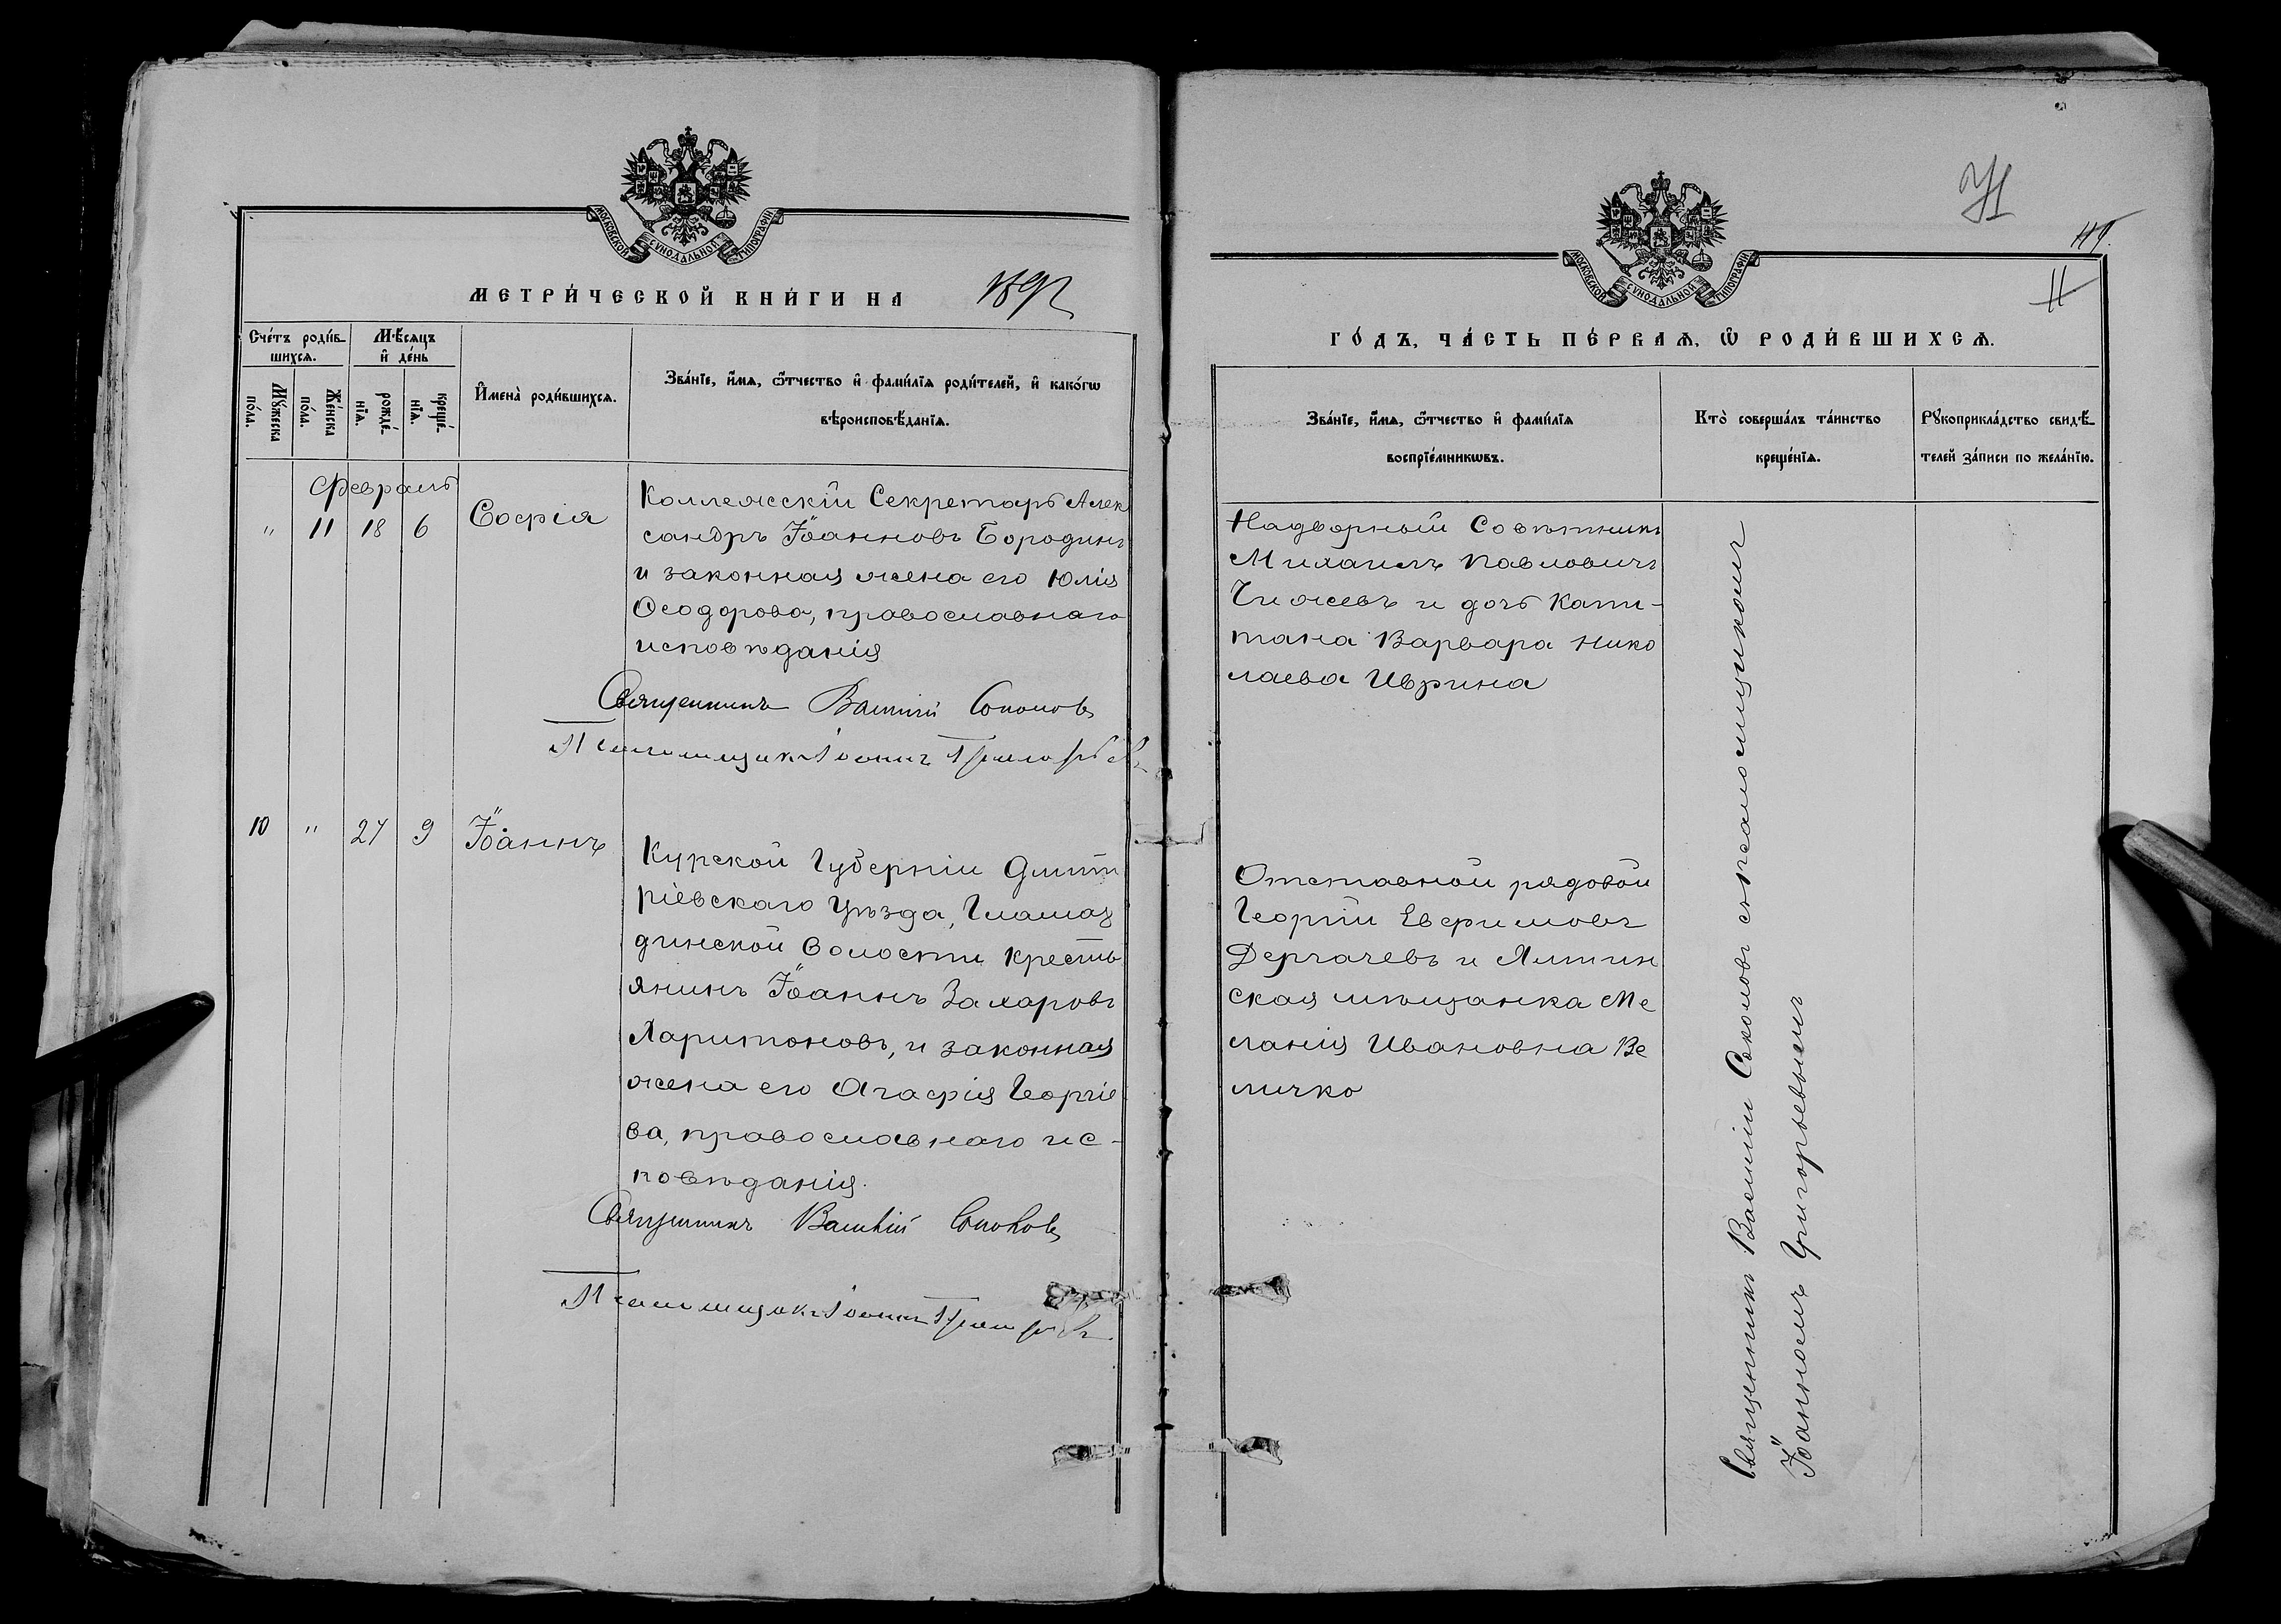 МОСКОВСКОЙ СѴНОДАЛЬНОЙ ТИПОГРАФІИ
МЕТРИ́ЧЕСКОЙ КНИ́ГИ НА 1892
Сче́тъ роди́в-
шихсѧ.
Мѣ́сѧцъ
и҆ де́нь
Мꙋ́жеска
по́ла.
Же́нска
по́ла.
рожде́-
нїѧ.
креще́-
нїѧ.
И҆мена̀ роди́вшихсѧ.
Зва́нїе, и҆́мѧ, ѻ҆́тчество и҆ фами́лїѧ роди́телей, и҆ како́гѡ
вѣроисповѣ́данїѧ.
Февраль
" 11 18 6 Софія
Коллежскій Секретарь Алек
сандръ Іоанновъ Бородинъ
и законная жена его Юлія
Ѳеодорова, православнаго
исповѣданія
Священникъ Василій Соколовъ
Псаломщикъ Іоаннъ Григорьевъ
10 " 27 9 Іоаннъ
Курской Губерніи Дмит
ріевскаго Уѣзда, Гламаз
динской Волости кресть
янинъ Іоаннъ Захаровъ
Харитоновъ, и законная
жена его Агафія Георгіе
ва, православнаго ис-
повѣданія.
Священникъ Василій Соколовъ
Псаломщикъ Іоаннъ Григорьевъ
МОСКОВСКОЙ СѴНОДАЛЬНОЙ ТИПОГРАФІИ
11
ГО́ДЪ, ЧА́СТЬ ПЕ́РВАѦ, Ѡ҆ РОДИ́ВШИХСѦ.
Зва́нїе, и҆́мѧ, ѻ҆́тчество и҆ фами́лїѧ
воспрїе́мникѡвъ.
Кто̀ соверша́лъ та́инство
креще́нїѧ.
Рꙋкоприкла́дство свидѣ́-
телей за́писи по жела́нїю.
Надворный Совѣтникъ
Михаилъ Павловичъ
Чижевъ и дочь Капи-
тана Варвара Нико
лаева Иврина
Отставной рядовой
Георгій Евфимовъ
Дергачевъ и Ялтин
ская мѣщанка Ме
ланія Ивановна Ве
личко
Священникъ Василій Соколовъ съ псаломщикомъ
Іоанномъ Григорьевымъ